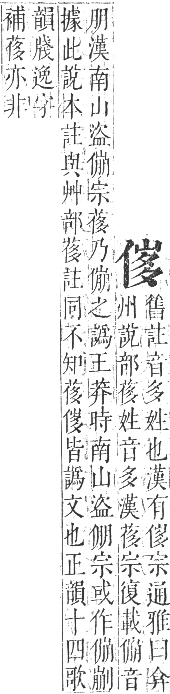 舊註音多姓也漢有宗通雅曰弇
州說部姓音多漢宗復載傰音
朋漢南山盜傰宗乃傰之譌王莽時南山盜倗宗或作傰
據此說本註與艸部註同不知皆譌文也正韻十四歌
韻牋逸字
補亦非